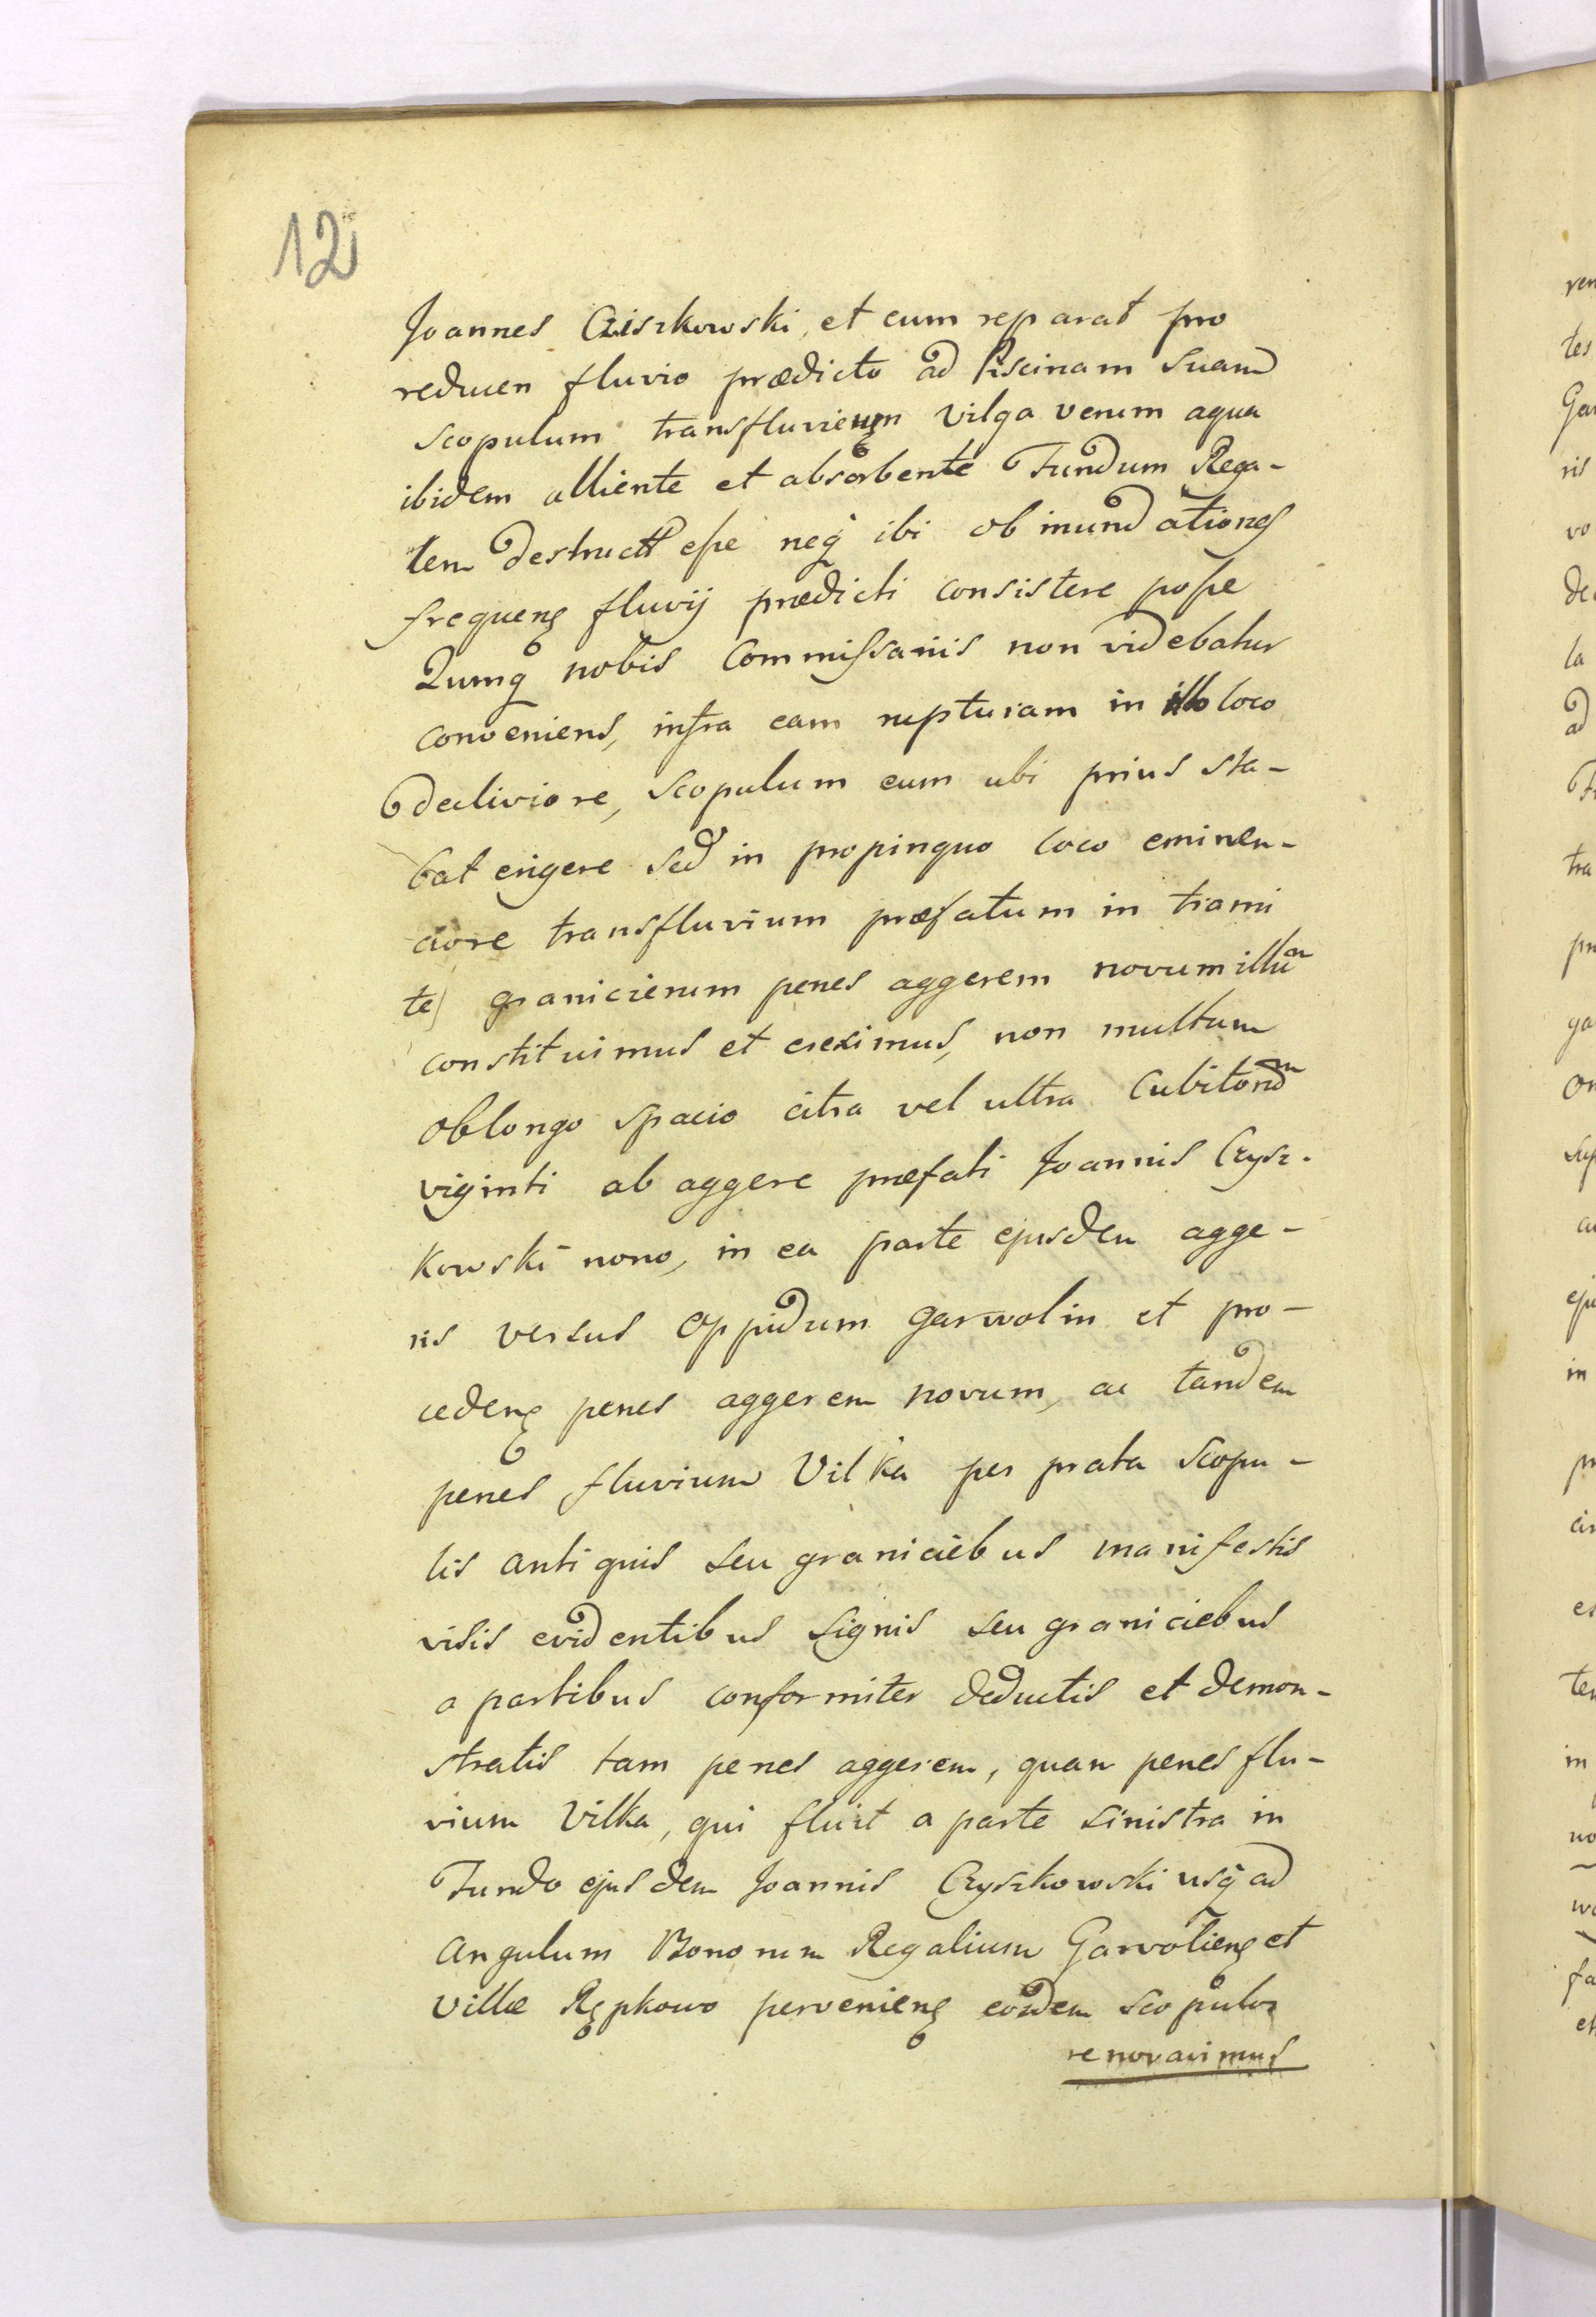 12
Joannes Cziszkowski, et eum reparat pro
reducen fluvio prædicto ad Piscinam Suam
scopulum transfluvienz Vilga verum aqua
ibidem alliente et absorbente Fundum Rega-
lem destructt eſse neq̃ ibi ob inundationes
frequenz fluvij prædicti consistere poſse
Qumq̃ nobis Commiſsariis non videbatur
conveniens, infra eam rupturam in illo loco
decliviore, scopulum eum ubi prius sta-
bat erigere sed in propinquo loco eminen-
ciore transfluvium præfatum in trami
te granicierum penes aggerem novum illum
constituimus et ereximus, non multum
oblongo spacio citra vel ultra Cubitorum
viginti ab aggere præfati Joannis Czysz-
kowski novo, in ea parte ejusdem agge-
ris versus Oppidum Garwolin et pro-
cedenz penes aggerem novum, ac tandem
penes fluvium Vilka per prata scopu-
lis antiquis seu graniciebus manifestis
visis evidentibus signis seu graniciebus
a partibus conformiter deductis et demon-
stratis tam penes aggerem, quam penes flu-
vium Vilka, qui fluit a parte sinistra in
Fundo ejusdem Joannis Czyszkowski usq̃ ad
angulum Bonorum Regalium Garvolienz et
Villæ Rępkowo pervenienz eosdem scopulos
renovavimus